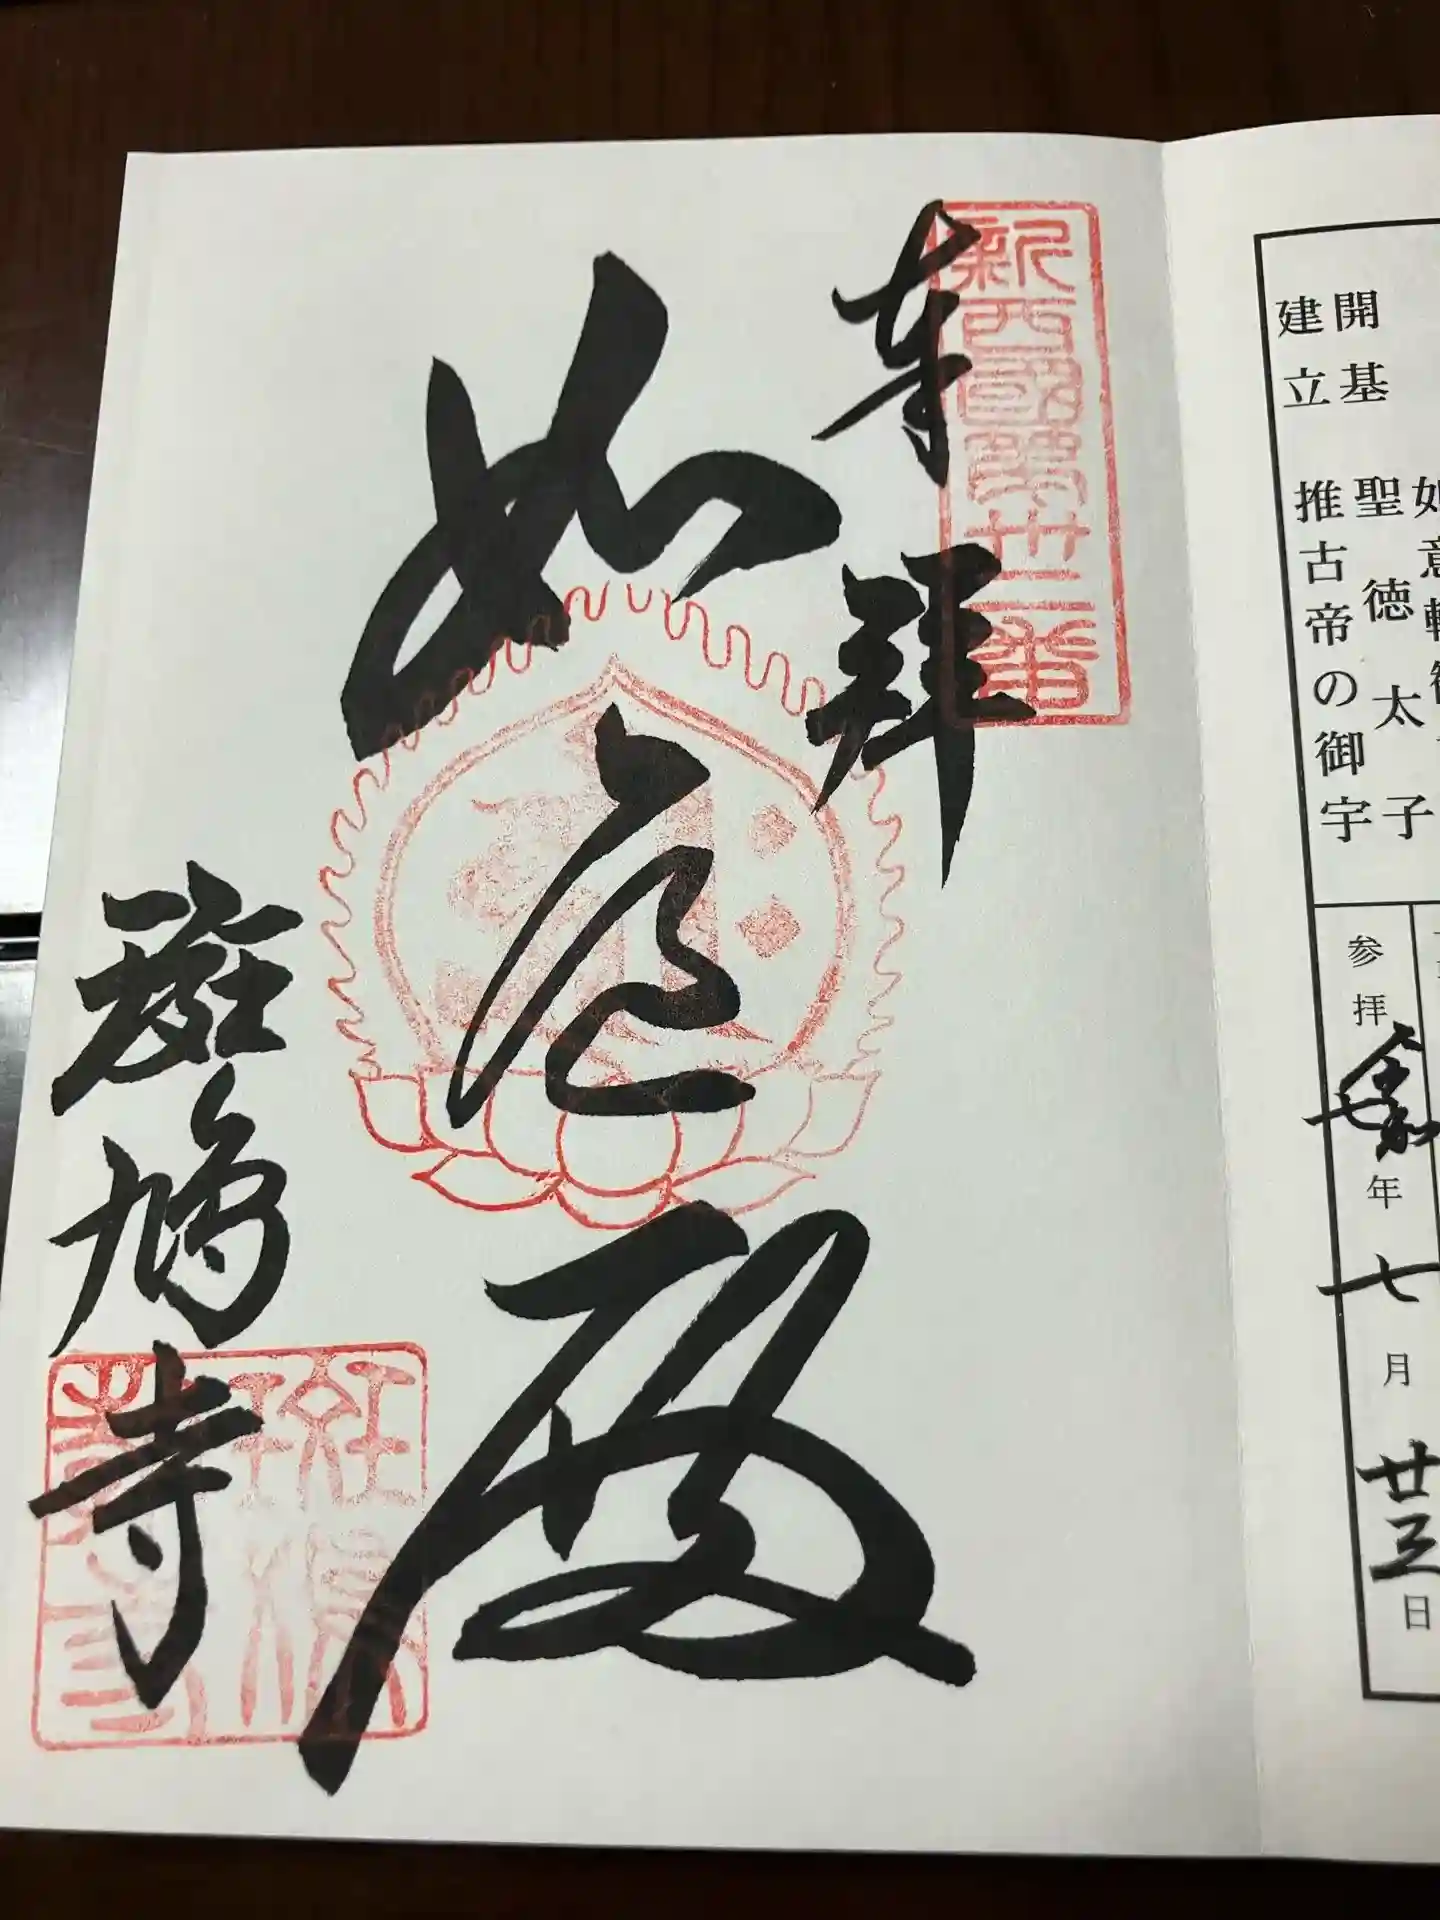 如意輪
開基 聖徳太子
建立 推古帝の御宇
参拝 令和七年七月廿三日
新西國第卅二番
奉拝
如意殿
斑鳩寺